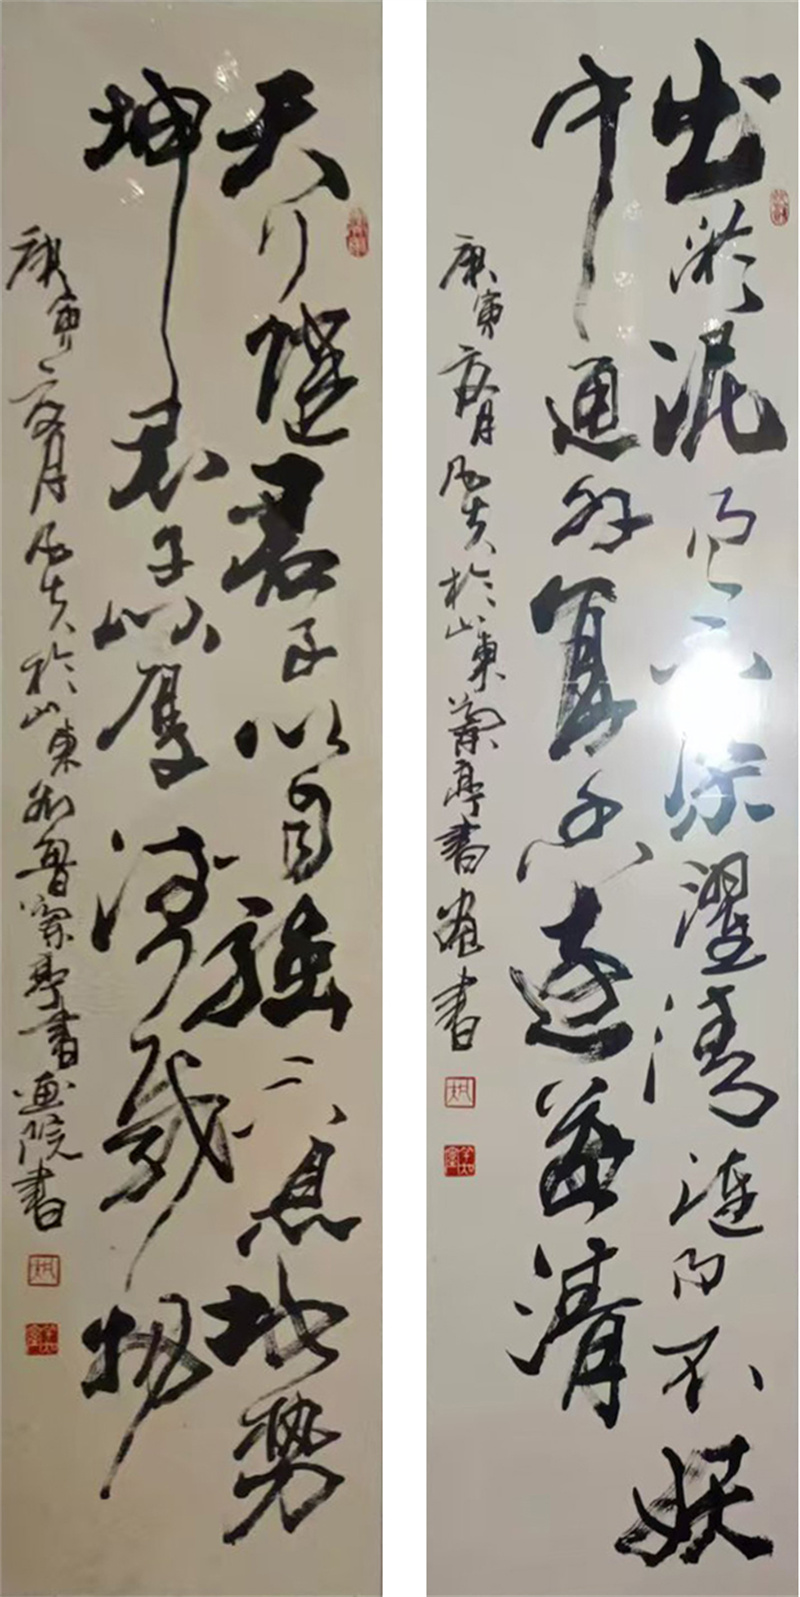 出淤泥而不染濯清漣而不妖
中通外直香遠益清
庚寅夏月凡夫於山東蘭亭書畫書
天行健君子以自強不息地勢
坤君子以厚德載物
庚寅夏月凡夫於山東齊魯蘭亭書畫院書